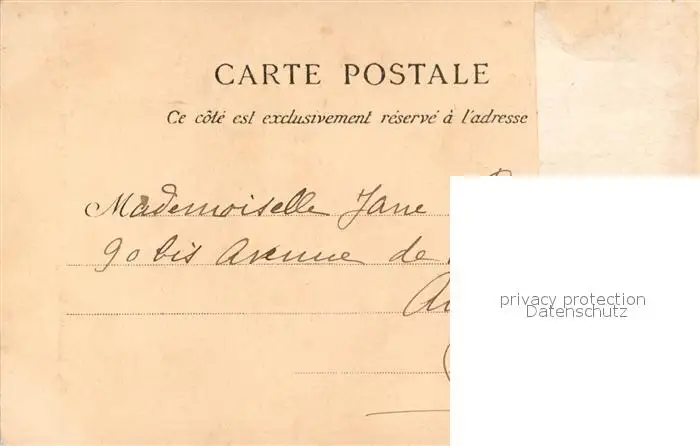 CARTE POSTALE
Ce côté est exclusivement réservé à l'adresse
Mademoiselle Jane
90 bis Avenue de
privacy protection
Datenschutz